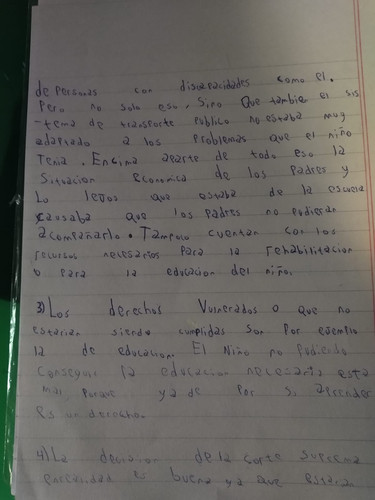 de personas con discapacidades como el.
Pero no solo eso, sino que tambie el sis
-tema de transporte publico no estaba muy
adaptado a los problemas que el niño
tenia. Encima aparte de todo eso la
situacion economica de los padres y
lo lejos que estaba de la escuela
causaba que los padres no pudieran
acompañarlo. Tampoco cuentan con los
recursos necesarios para la rehabilitacion
o para la educacion del niño.
3) Los derechos vulnerados o que no
estarian siendo cumplidas son por ejemplo
la de educacion. El Niño no pudiendo
conseguir la educacion necesaria esta
mal porque ya de por si aprender
es un derecho.
4) La decision de la corte suprema
en realidad es buena ya que estarian